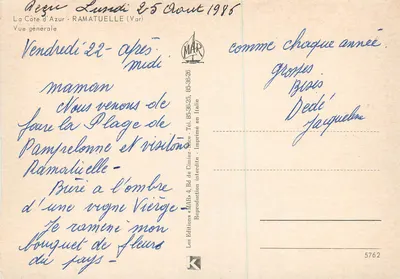 Reçu Lundi 25 Août 1985
La Côte d'Azur - RAMATUELLE (Var)
Vue générale
Vendredi 22 - après.
midi
maman
Nous venons de
faire la Plage de
Pampelonne et visitons
Ramatuelle -
à l'ombre
d'une vigne Vierge -
Je ramène mon
bouquet de fleurs
du pays -
MAR
Les Editions «MAR» 4, Bd de
Reproduction interdite - Imprimé en Italie
comme chaque année.
grosses
Bises
Dédé
Jacqueline
K
5762